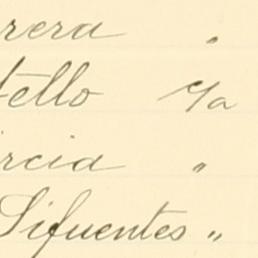 rrera "
tello c/a
rcia "
Sifuentes "